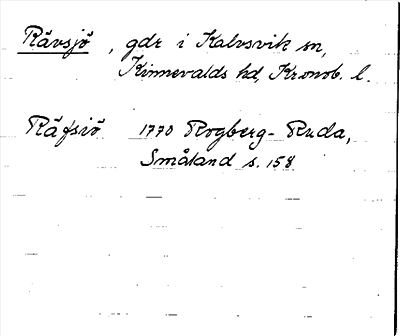 Rävsjö, gdr i Kalvsvik sn,
Kinnevalds hd, Kronob. l.
Räfsiö 1770 Rogberg-Ruda,
Småland s. 158